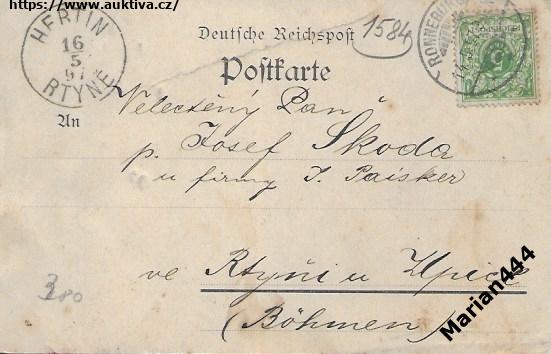 https://www.auktiva.cz/
HERTIN
16
5
97
RTYNĚ
Deutsche Reichspost
1584
RONNEBURG
Postkarte
An
Velectěný Pan
p. Josef Škoda
u firmy J. Paisker
ve Rtyni u Upice
(Böhmen)
380
Marian444